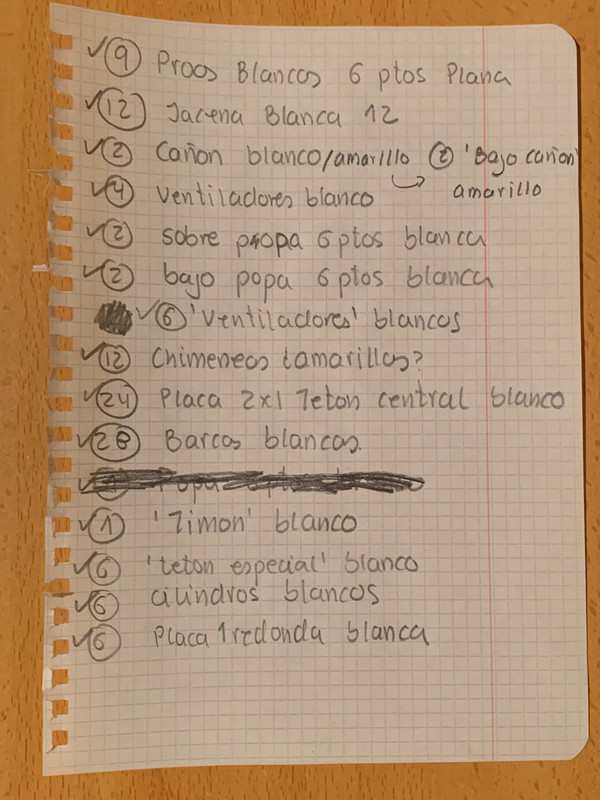 ✓9 Proas Blancas 6 ptos Plana
✓12 Jacena Blanca 12
✓2 Cañon blanco/amarillo 2 'Bajo cañon'
amarillo
✓4 Ventiladores blanco
✓2 sobre propa 6 ptos blanca
✓2 bajo popa 6 ptos blanca
✓6 'Ventiladores' blancos
✓12 Chimeneas ¿amarillas?
✓24 Placa 2x1 Teton central blanco
✓28 Barcas blancas.
✓1 'Timon' blanco
✓6 'teton especial' blanco
✓6 cilindros blancos
✓6 Placa 1 redonda blanca